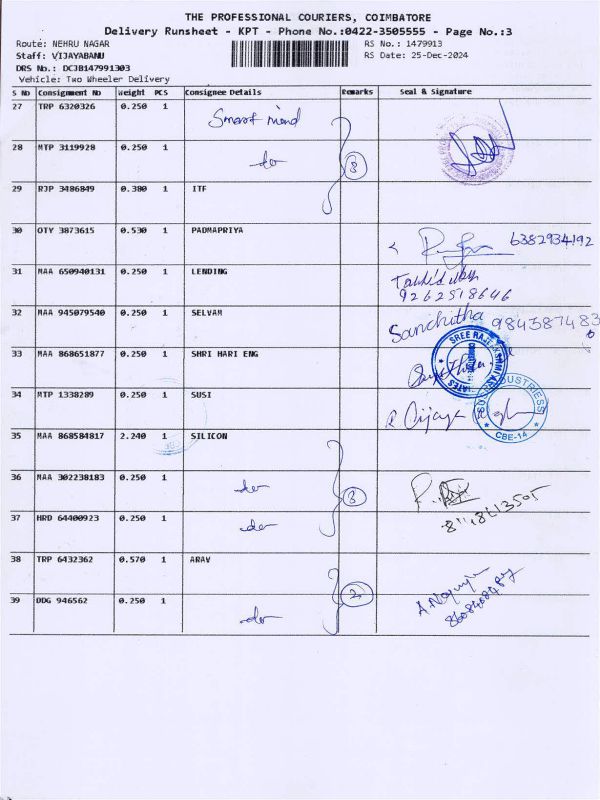 THE PROFESSIONAL COURIERS, COIMBATORE
Delivery Runsheet - KPT - Phone No.:0422-3505555 - Page No.:3
Route: NEHRU NAGAR RS No.: 1479913
Staff: VIJAYABANU RS Date: 25-Dec-2024
DRS No.: DCJB147991303
Vehicle: Two Wheeler Delivery
S No Consignment No Weight PCS Consignee Details Remarks Seal & Signature
27 TRP 6320326 0.250 1 Smart mind
28 MTP 3119928 0.250 1 do 3
29 RJP 3486849 0.380 1 ITF
30 OTY 3873615 0.530 1 PADMAPRIYA 6382934192
31 MAA 650940131 0.250 1 LENDING
9262518646
32 MAA 945079540 0.250 1 SELVAM Sanchitha
33 MAA 868651877 0.250 1 SHRI HARI ENG
34 MTP 1338289 0.250 1 SUSI R Vijaya CBE-14
35 MAA 868584817 2.240 1 SILICON
36 MAA 302238183 0.250 1 do 3
37 HRD 64400923 0.250 1 do
38 TRP 6432362 0.570 1 ARAV
39 DDG 946562 0.250 1 do 2